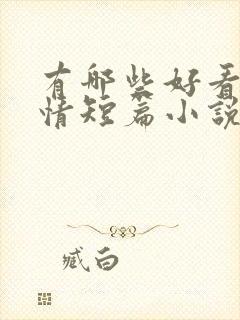 有哪些好看
情短篇小說
臧白